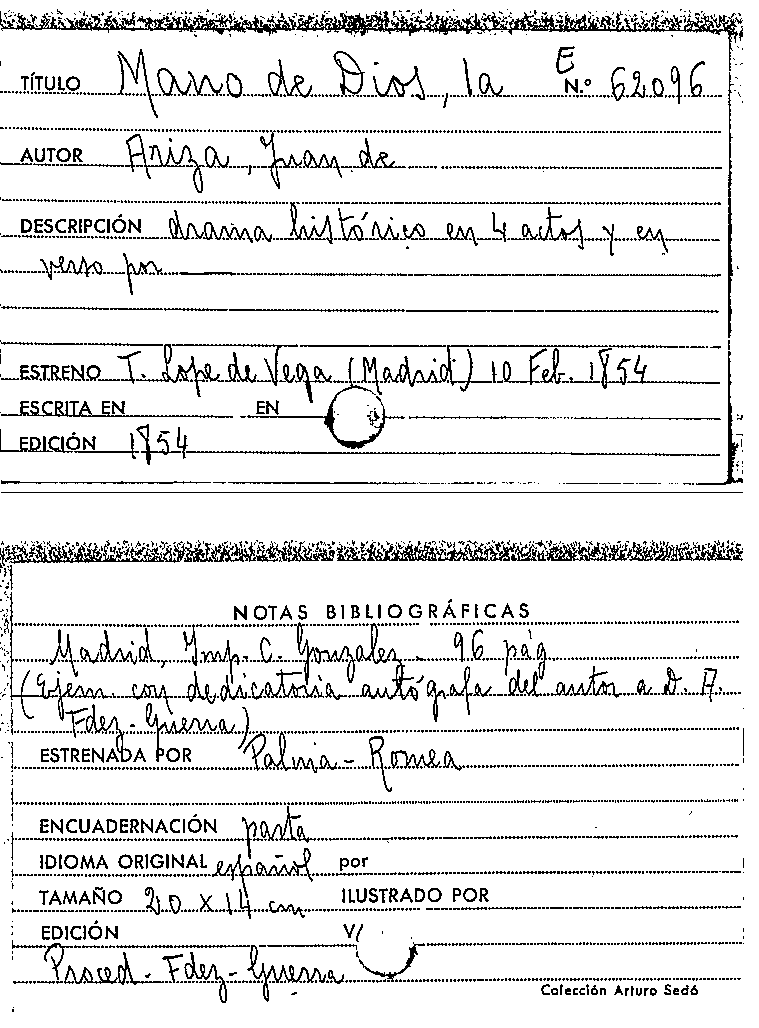 TÍTULO Mano de Dios, la E N.º 62096
AUTOR Ariza, Juan de
DESCRIPCIÓN drama histórico en 4 actos y en
verso por
ESTRENO T. Lope de Vega (Madrid) 10 Feb. 1854
ESCRITA EN EN
EDICIÓN 1854
NOTAS BIBLIOGRÁFICAS
Madrid, Imp. C. Gonzalez - 96 pág
(Ejem. con dedicatoria autógrafa del autor a D. A.
Fdez-Guerra)
ESTRENADA POR Palma - Romea
ENCUADERNACIÓN pasta
IDIOMA ORIGINAL español por
TAMAÑO 20 x 14 cm ILUSTRADO POR
EDICIÓN V/
Proced - Fdez-Guerra
Colección Arturo Sedó